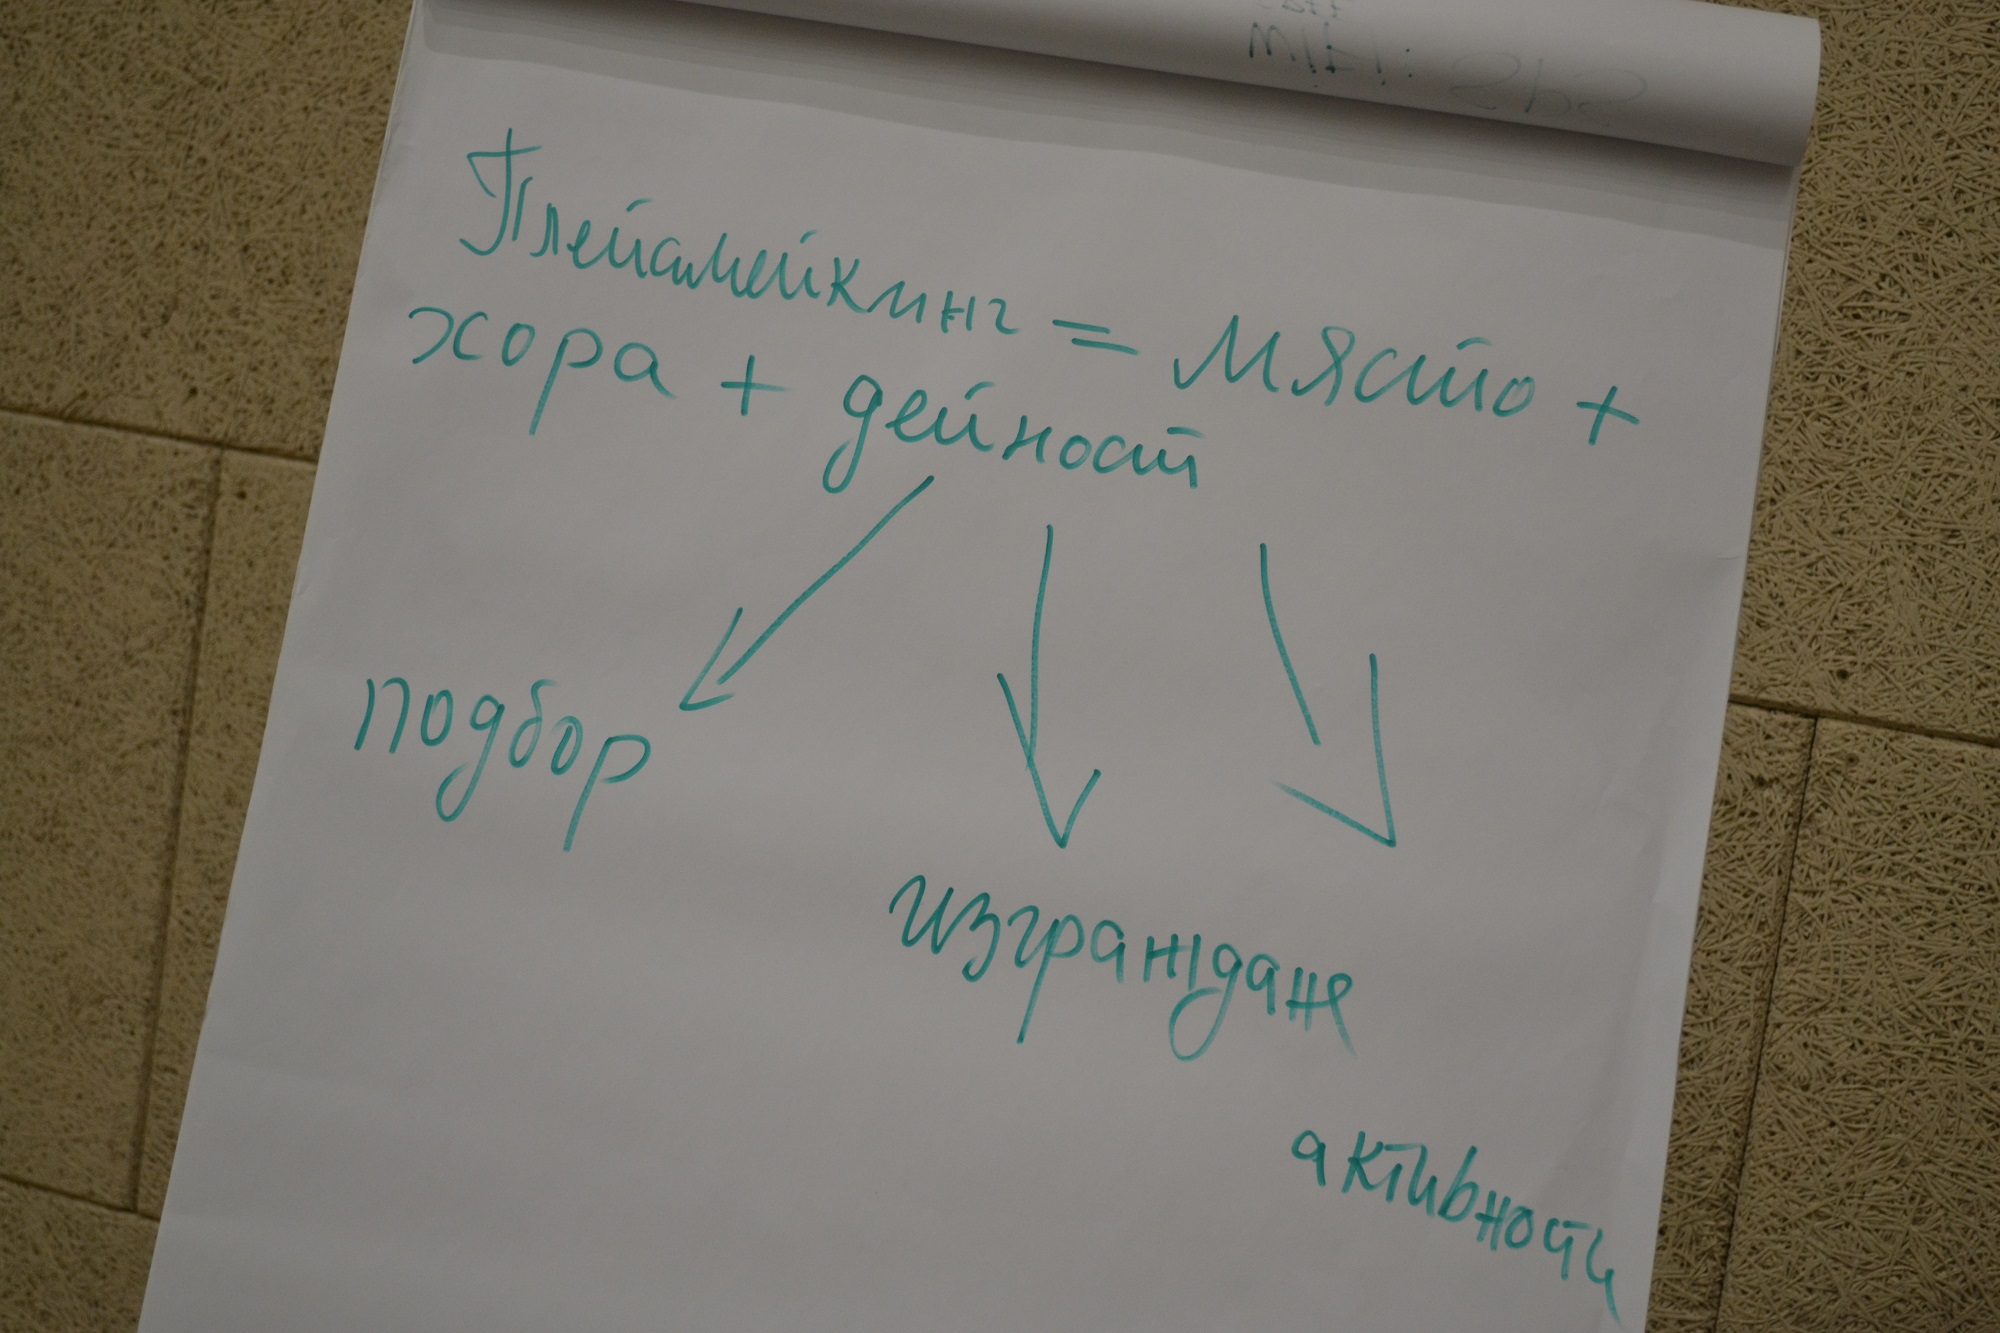 Плейсмейкинг = място +
хора + дейност
подбор
изграждане
активност